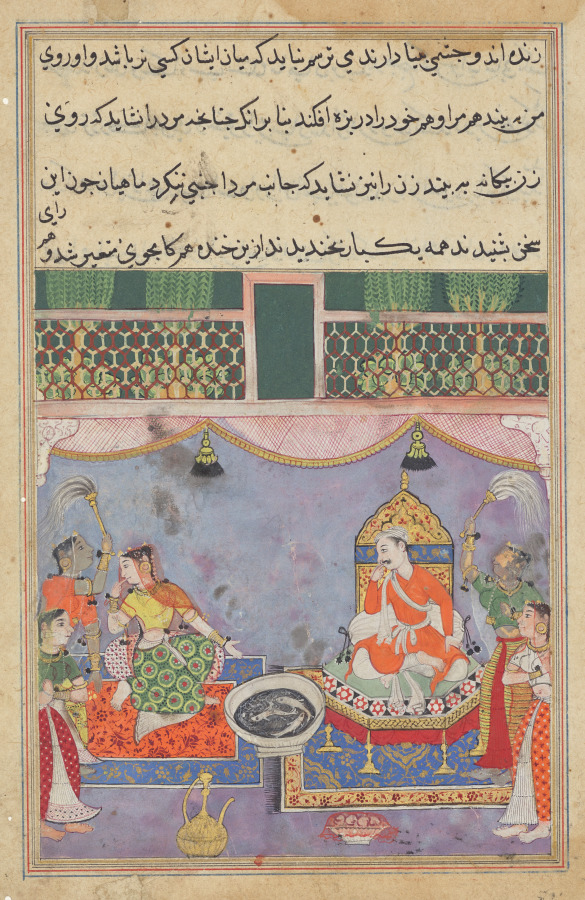 زنده اند و چشمی بینا دارند می ترسم نباید که میان ایشان کسی نر باشد و او روی
من به بیند هم مرا و هم خود را در بزه افکند بنا برانک چنانچه مرد را نشاید که روی
زن بیکانه به بیند زن را نیز نشاید که جانب مرد اجنبی نکرد ماهیان چون این
سخن بشنیدند همه یک بار بخندیدند از ین خنده هم کامجوی متغیر شد و هم
رای